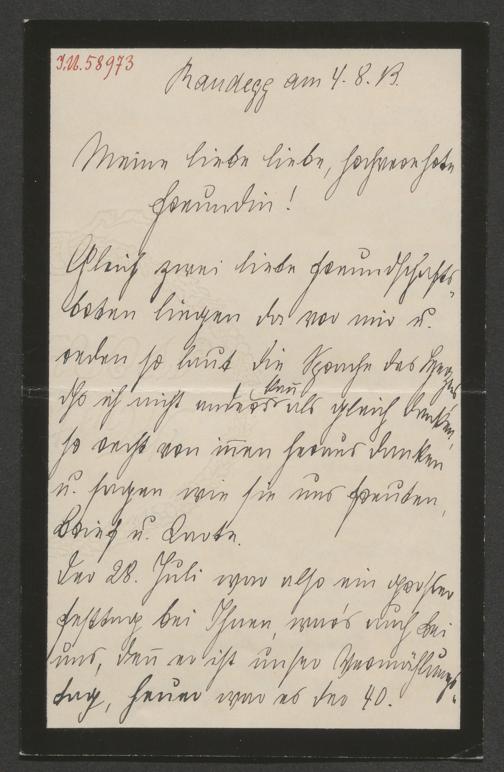 I.N. 58973
Randegg am 4. 8. 13.
Meine liebe liebe, hochverehrte
Freundin!
Gleich zwei liebe Freundschafts-
boten liegen da vor mir u.
reden so laut die Sprache des Herzens
daß ich nicht anders kann als gleich danken,
so recht von inen heraus danken
u. sagen wie sie uns freuten,
Brief u. Karte.
Der 28. Juli war also ein großer
Festtag bei Ihnen, war's auch bei
uns, den er ist unser Vermählungs-
tag, heuer war es der 40.